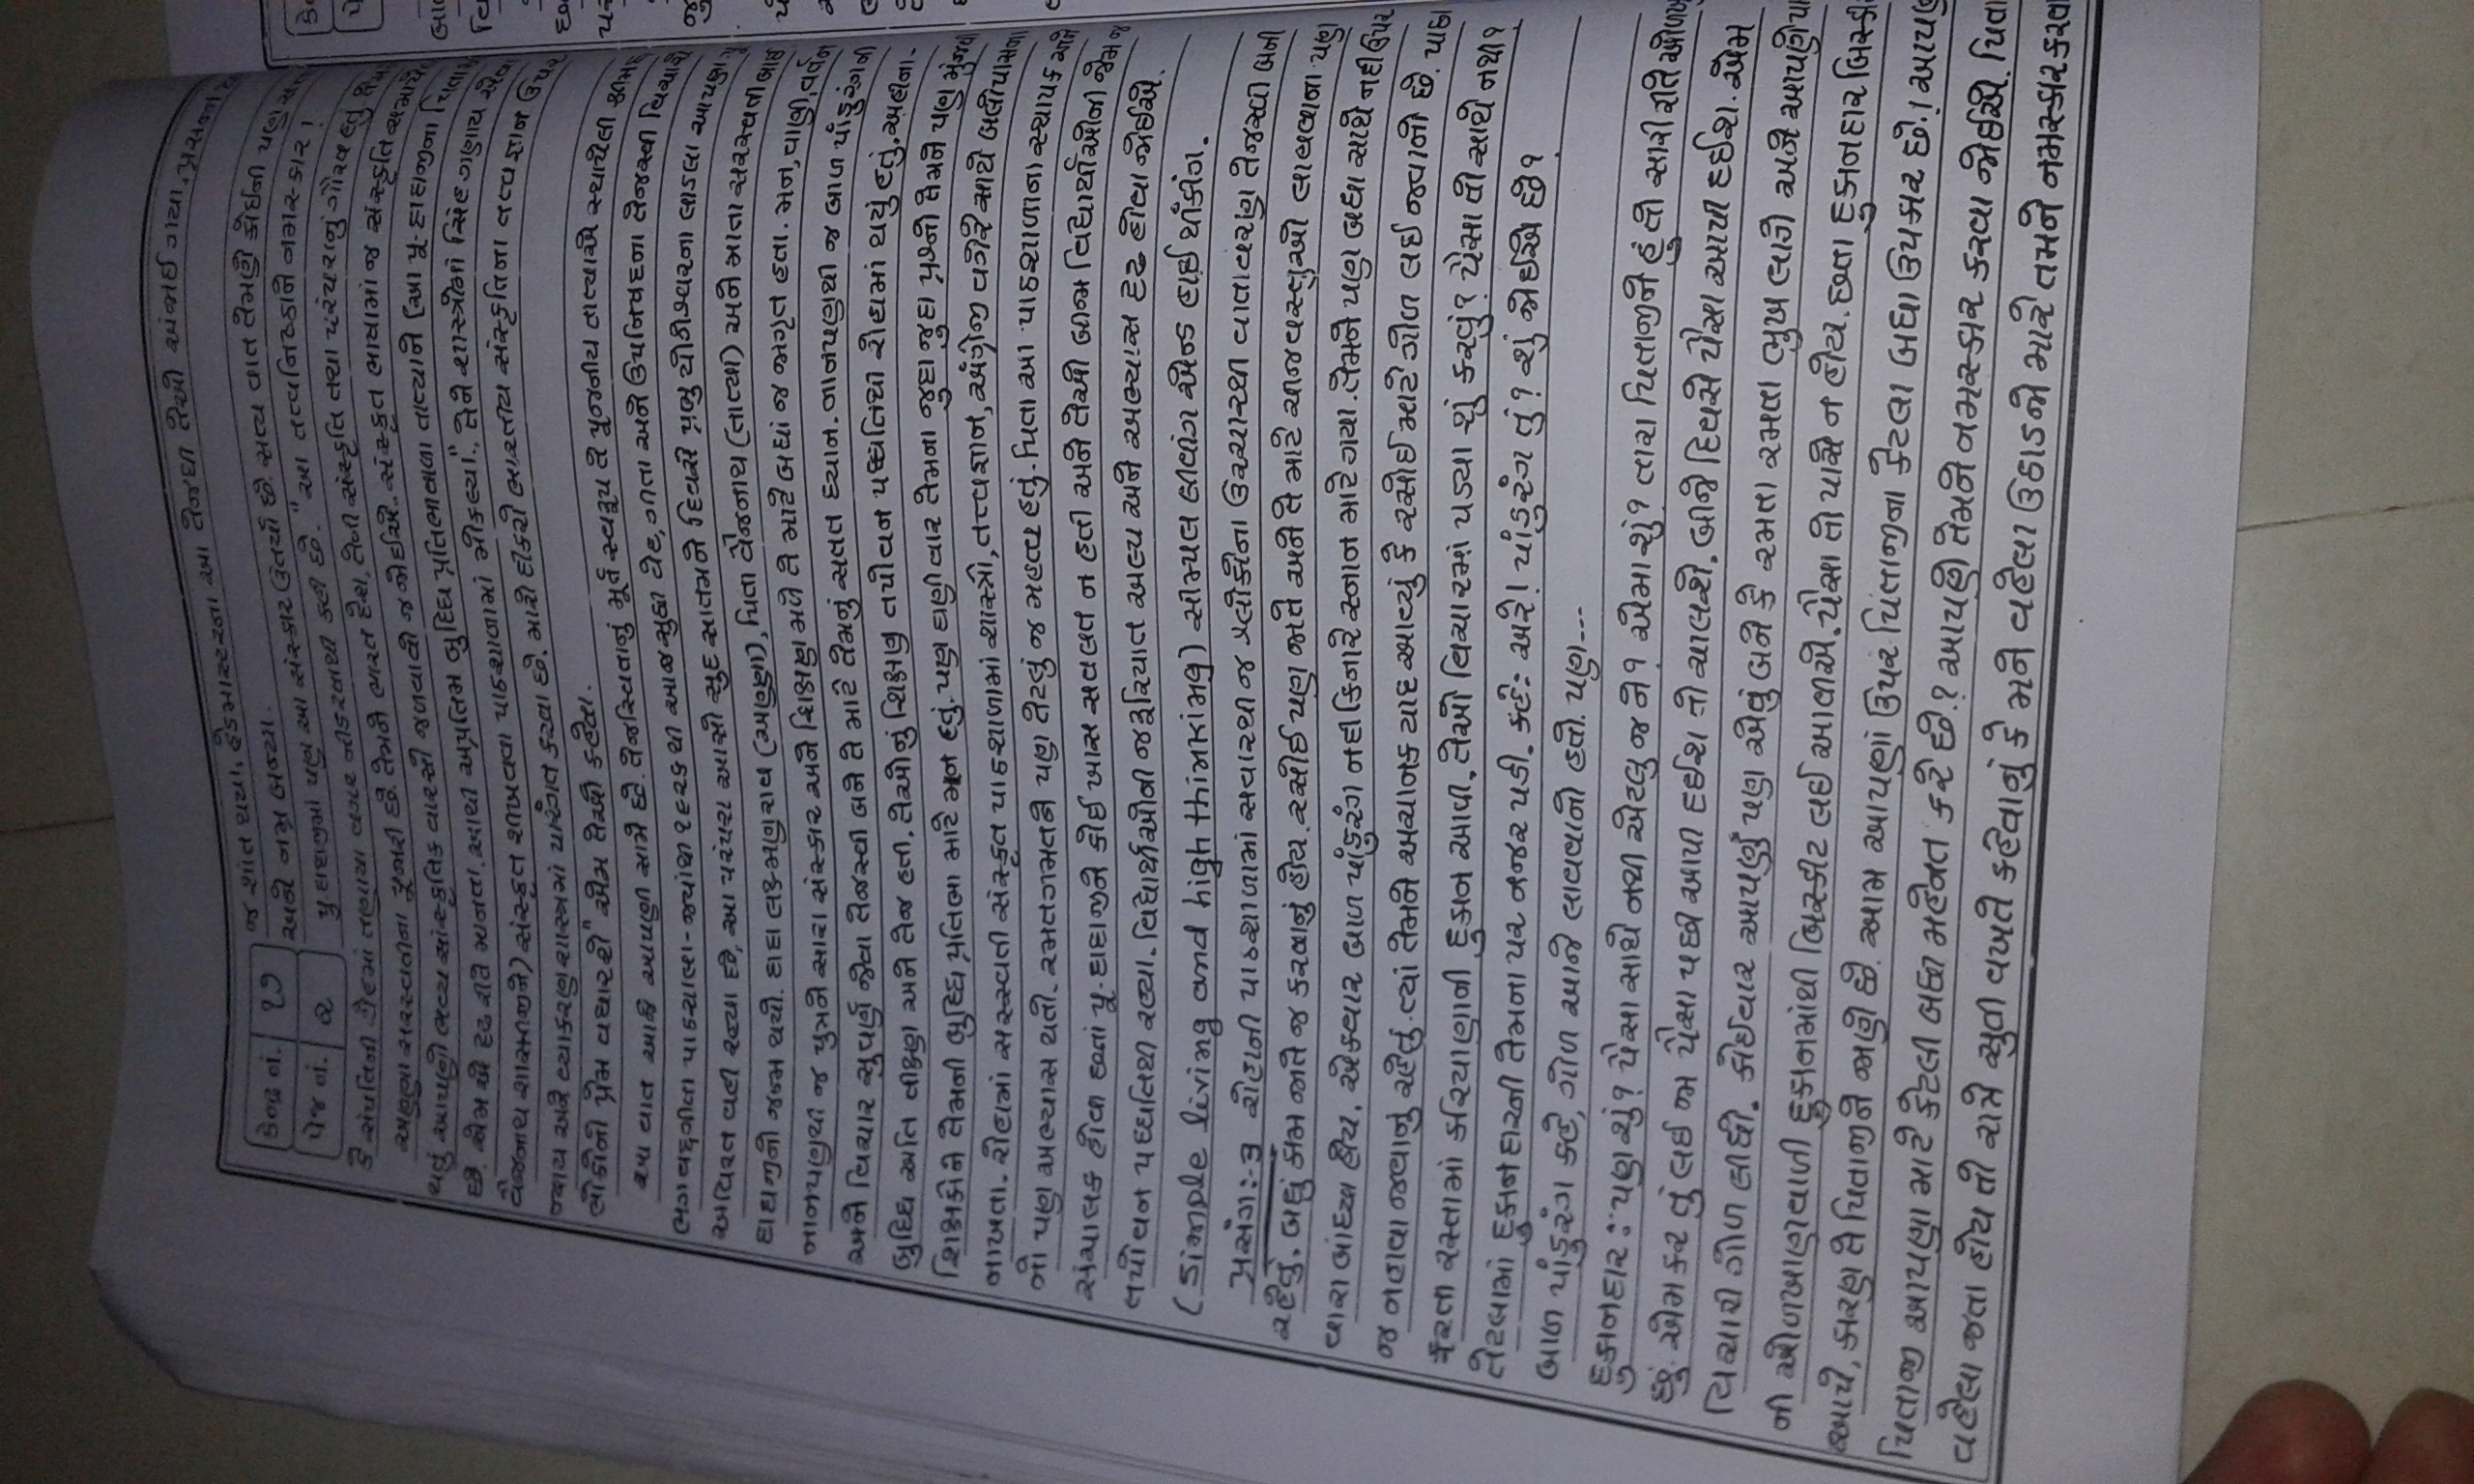 જ શાંત થયા. હેડમાસ્ટરના આ તેજથી તેઓ અંજાઈ ગયા. પ્રસન્ન
કેન્દ્ર નં. ૧૭
અને નમ્ર બન્યા.
પેજ નં. ૨
પૂ.દાદાજીમાં પણ આ સંસ્કાર ઉતર્યા છે. સત્ય વાત તેમણે કોઈની પણ
કે સંપત્તિની શેહમાં તણાયા વગર નીડરતાથી કહી છે. "આ તત્વનિષ્ઠાને નમસ્કાર!
અણ્ણા સરસ્વતીના પૂજારી છે. તેમને ભારત દેશ, તેની સંસ્કૃતિ તથા પરંપરાનું ગૌરવ હતું
થતું આપણો ભવ્ય સાંસ્કૃતિક વારસો જળવાવો જ જોઈએ.. સંસ્કૃત ભાષામાં જ સંસ્કૃતિ
છે. એમ એ દ્રઢ રીતે માનતા. આથી અપ્રતિમ બુધ્ધિ પ્રતિભાવાળા તાત્યાને (આ પૂ. દાદાજીના
વૈજનાથ શાસ્ત્રીજીને) સંસ્કૃત શીખવવા પાઠશાળામાં મોકલ્યા., તેને શાસ્ત્રોમાં સિંહ ગણાય એવા
ન્યાય અને વ્યાકરણશાસ્ત્રમાં પારંગત કરવા છે. મારો દીકરો ભારતીય સંસ્કૃતિના તત્વજ્ઞાન ઉપર
લોકોનો પ્રેમ વધારશે" એમ તેઓ કહેતા.
આ વાત આજે આપણી સામે છે. તેજસ્વિતાનું મૂર્ત સ્વરૂપ તે પૂજનીય તાત્યાએ સ્થાપેલી શ્રીમદ્
ભગવદ્દગીતા પાઠશાલા - જ્યાંથી ૧૯૨૬થી આજસુધી વેદ, ગીતા અને ઉપનિષદના તેજસ્વી વિચારો
અવિરત વહી રહ્યા છે, આ પરંપરા આસો સુદ સાતમને દિવસે પ્રભુ યોગેશ્વરના લાડલા આપણા પૂ
દાદાજીનો જન્મ થયો. દાદા લક્ષ્મણરાવ (અણ્ણા), પિતા વૈજનાથ (તાત્યા) અને માતા સરસ્વતીબાઈ
નાનપણથી જ પુત્રને સારા સંસ્કાર અને શિક્ષણ મળે તે માટે બધાં જ જાગૃત હતા. મન, વાણી, વર્તન
અને વિચાર સુવર્ણ જેવા તેજસ્વી બને તે માટે તેમનું સતત ધ્યાન. નાનપણથી જ બાળ પાંડુરંગની
બુધ્ધિ અતિ તીક્ષ્ણ અને તેજ હતી. તેઓનું શિક્ષણ તપોવન પધ્ધતિથી રોહામાં થયું હતું. અહીંના-
શિક્ષકોને તેમની બુધ્ધિ પ્રતિભા માટે માન હતું. પણ ઘણીવાર તેમના જુદા જુદા પ્રશ્નો તેમને પણ મુંજવી
નાખતા. રોહામાં સરસ્વતી સંસ્કૃત પાઠશાળામાં શાસ્ત્રો, તત્વજ્ઞાન, અંગ્રેજી વગેરે સાથે બલોપાસના
નો પણ અભ્યાસ થતો. રમતગમતને પણ તેટલું જ મહત્વ હતું. પિતા આ પાઠશાળાના સ્થાપક અને
સંચાલક હોવા છતાં પૂ. દાદાજીને કોઈ ખાસ સવલત ન હતી અને તેઓ બીજા વિદ્યાર્થીઓની જેમ જ
તપોવન પધ્ધતિથી રહ્યા. વિદ્યાર્થીઓની જરૂરિયાત અલ્પ અને અભ્યાસ દ્રઢ હોવા જોઈએ.
(simple living and high thinking) સીમ્પલ લીવીંગ એન્ડ હાઈ થીંકીંગ.
પ્રસંગ:-૩ રોહાની પાઠશાળામાં સવારથી જ શ્લોકોના ઉચ્ચારથી વાતાવરણ તેજસ્વી બની
રહેતું. બધું કામ જાતે જ કરવાનું હોય. રસોઈ પણ જાતે અને તે માટે ચીજવસ્તુઓ લાવવાના પણ
વારા બાંધ્યા હોય. એકવાર બાળ પાંડુરંગ નદી કિનારે સ્નાન માટે ગયા. તેમને પણ બધા સાથે નદી ઉપર
જ નહાવા જવાનું રહેતું. ત્યાં તેમને અચાનક યાદ આવ્યું કે રસોઈ માટે ગોળ લઈ જવાનો છે. પાછા
ફરતા રસ્તામાં કરિયાણાની દુકાન આવી. તેઓ વિચારમાં પડ્યા શું કરવું? પૈસા તો સાથે નથી?
તેટલામાં દુકાનદારની તેમના પર નજર પડી. કહે: અરે! પાંડુરંગ તું? શું જોઈએ છે?
બાળ પાંડુરંગ કહે, ગોળ આજે લાવવાનો હતો. પણ---
દુકાનદાર:- પણ શું? પૈસા સાથે નથી એટલુ જ ને? એમા શું? તારા પિતાજીને હું તો સારી રીતે ઓળખુ
છું. એમ કર તું લઈ જા પૈસા પછી આપી દઈશ તો ચાલશે. બીજે દિવસે પૈસા આપી દઈશ. એમ
વિચારી ગોળ લીધો. કોઈવાર આપણું પણ એવું બને કે રમતા રમતા ભુખ લાગે અને આપણે પા
ની ઓળખાણવાળી દુકાનમાંથી બિસ્કીટ લઈ આવીએ. પૈસા તો પાસે ન હોય. છતા દુકાનદાર બિસ્કી
આપે, કારણ તે પિતાજીને જાણે છે. આમ આપણાં ઉપર પિતાજીના કેટલા બધા ઉપકાર છે.! આપણ
પિતાજી આપણા માટે કેટલી બધી મહેનત કરે છે.? આપણે તેમને નમસ્કાર કરવા જોઈએ. પિતા
વહેલા જતા હોય તો રાત્રે સુતી વખતે કહેવાનું કે મને વહેલા ઉઠાડજો મારે તમને નમસ્કાર કરવા